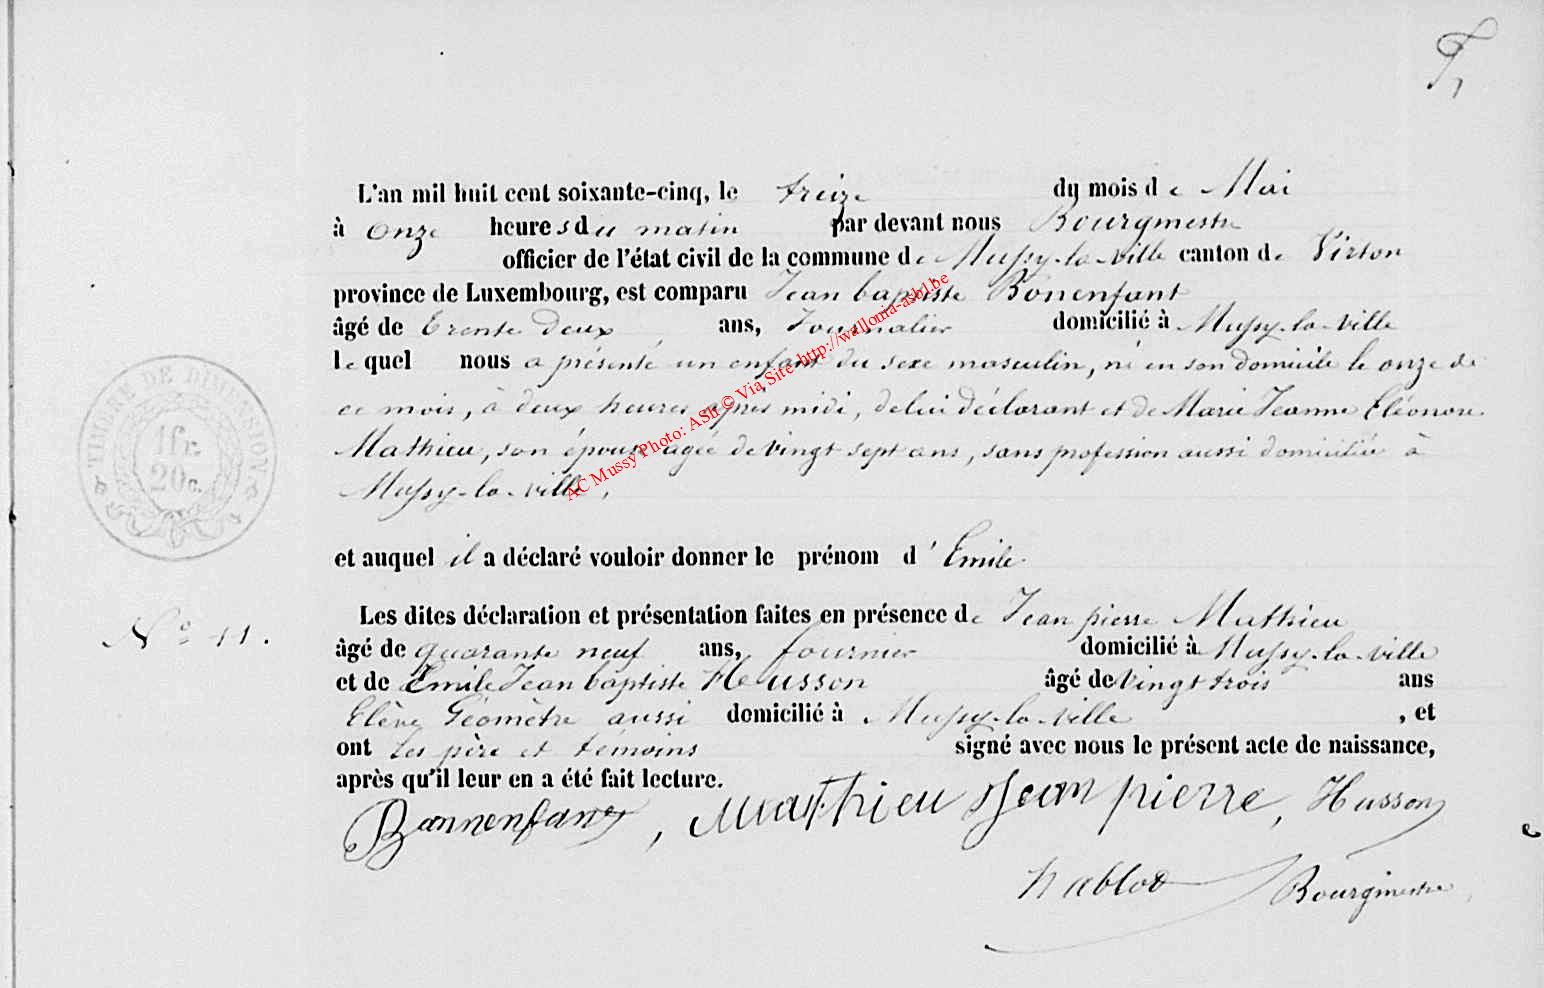 L'an mil huit cent soixante-cinq, le treize du mois de Mai
à onze heures du matin par devant nous Bourgmestre
officier de l'état civil de la commune de Mussy-la-ville canton de Virton
province de Luxembourg, est comparu Jean baptiste Bonenfant
âgé de trente deux ans, Journalier domicilié à Mussy-la-ville
lequel nous a présenté un enfant du sexe masculin, né en son domicile le onze de
ce mois, à deux heures après midi, de lui déclarant et de Marie Jeanne Eléonore
Mathieu, son épouse agée de vingt sept ans, sans profession aussi domiciliée à
Mussy-la-ville,
TIMBRE DE DIMENSION
1fr.
20c.
et auquel il a déclaré vouloir donner le prénom d'Emile
N° 11.
Les dites déclaration et présentation faites en présence de Jean pierre Mathieu
âgé de quarante neuf ans, fournier domicilié à Mussy-la-ville
et de Emile Jean baptiste Husson âgé de vingt trois ans
Elève Géomètre aussi domicilié à Mussy-la-ville, et
ont les père et témoins signé avec nous le présent acte de naissance,
après qu'il leur en a été fait lecture.
Bonnenfant, Mathieu Jean pierre, Husson
Bourgmestre
AC Mussy Photo: ASh © Via Site http://wallonia-asbl.be